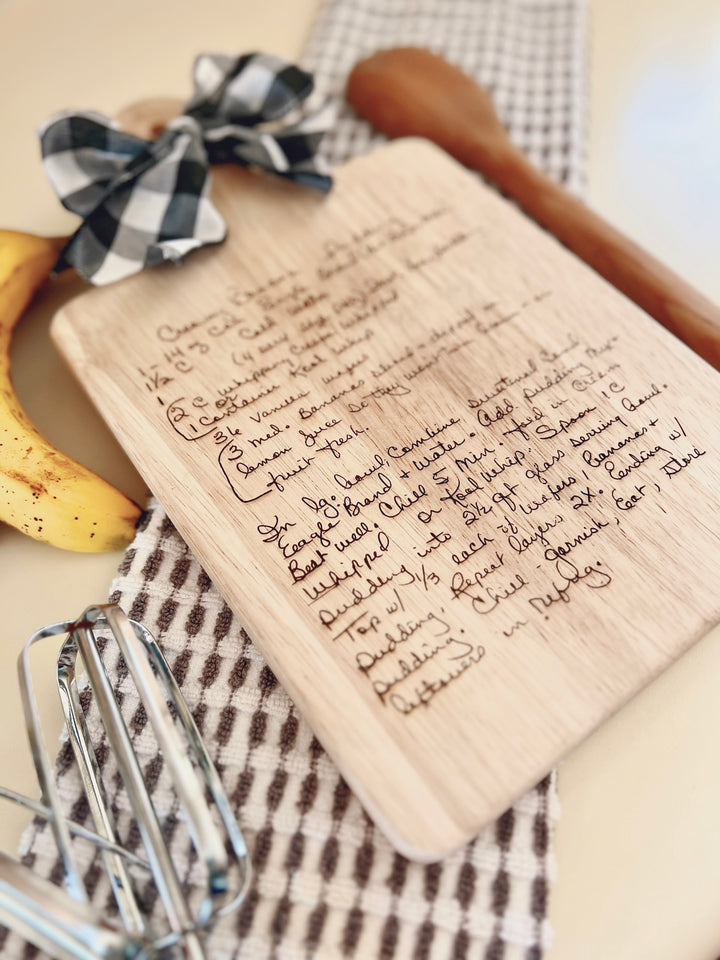 Creamy Banana Pudding
1 - 14 oz Can Eagle Brand
1 1/2 C Cold Water
1
(2 C Whipping Cream Whipped
or
1 Container Kool Whip
36 Vanilla Wafers
3 Med. Bananas sliced + dipped in
lemon juice
fruit fresh.
In lg. bowl, combine sweetened Cond
Eeagle Brand + water. Add pudding mix.
Beat well. Chill 5 min. Fold in Cream
Whipped or Kool Whip. Spoon 1 C
Pudding into 2 1/2 qt glass serving bowl.
Top w/ 1/3 each of wafers, bananas +
Pudding, Repeat layers 2X. Ending w/
Pudding. Chill - garnish, Eat, Store
leftovers in refrig.